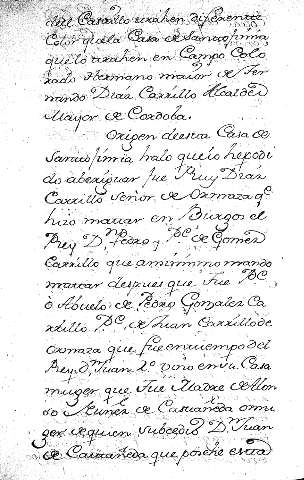 del Carrillo trahen diferente
Color que la Casa de Santofimia
que lo trahen en Campo Colo
rado Hermano maior de Fer
nando Diaz Carrillo Alcalde
Mayor de Cordoba.
Origen de esta Casa de
Santofimia halo que io he podi
do aberiguar fue Ruy Diaz
Carrillo Señor de Ormaza q.e
hizo matar en Burgos el
Rey D.n Pedro y P.e de Gomez
Carrillo que asimismo mando
matar despues que fue P.e
ò Abuelo de Pedro Gonzalez Ca
rrillo P.e de Juan Carrillo de
Ormaza que fue en tiempo del
Rey D.n Juan 2.o vino en su Casa
muger que fue Madre de Alon
so Nuñez de Castañeda o mu
ger de quien subcedio D.n Juan
de Castañeda que posehe esta